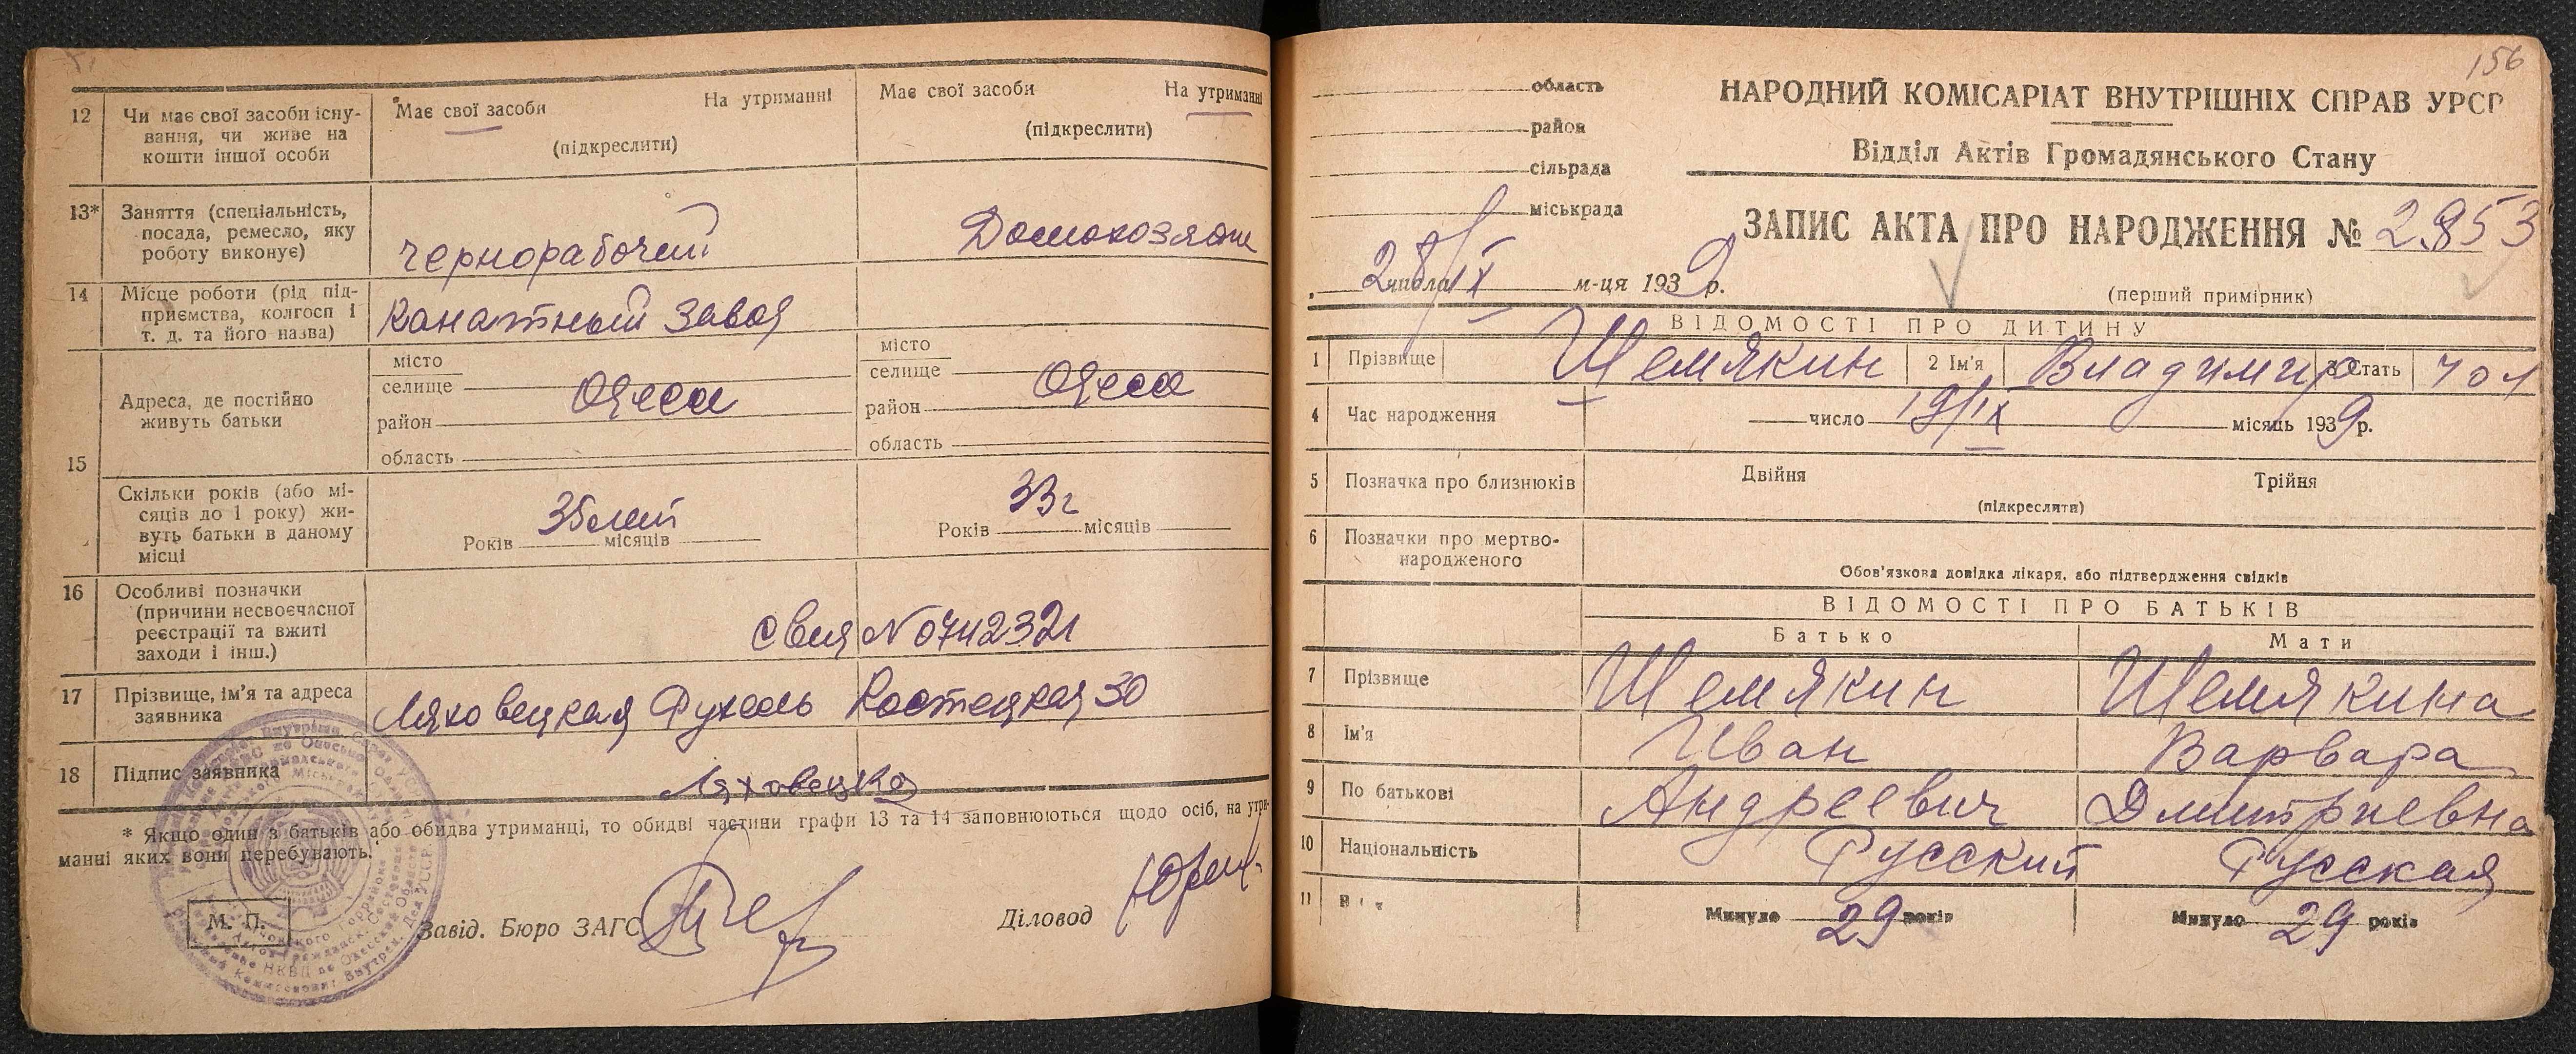 12
Чи має свої засоби існу-
вання, чи живе на
кошти іншої особи
Має свої засоби На утриманні
(підкреслити)
Має свої засоби На утриманні
(підкреслити)
13*
Заняття (спеціальність,
посада, ремесло, яку
роботу виконує)
чернорабочий
Домохозяйк
14
Місце роботи (рід під-
приємства, колгосп і
т. д. та його назва)
Канатный завод
15
Адреса, де постійно
живуть батьки
місто
селище
Одесса
район
область
місто
селище
Одесса
район
область
Скільки років (або мі-
сяців до 1 року) жи-
вуть батьки в даному
місці
35 лет
Років місяців
33 г
Років місяців
16
Особливі позначки
(причини несвоєчасної
реєстрації та вжиті
заходи і інш.)
свид No 742321
17
Прізвище, ім'я та адреса
заявника
Ляховецкая Костецкая 30
18
Підпис заявника
* Якщо один з батьків або обидва утриманці, то обидві частини графи 13 та 14 заповнюються щодо осіб, на утри-
манні яких вони перебувають.
М. П.
Завід. Бюро ЗАГС
Діловод
156
область
район
сільрада
міськрада
28 числа IX м-ця 1939 р.
НАРОДНИЙ КОМІСАРІАТ ВНУТРІШНІХ СПРАВ УРСР
Відділ Актів Громадянського Стану
ЗАПИС АКТА ПРО НАРОДЖЕННЯ № 2853
(перший примірник)
ВІДОМОСТІ ПРО ДИТИНУ
1 Прізвище Шемякин 2 Ім'я Владимир 3 Стать чол
4 Час народження число 19/IX місяць 1939 р.
5 Позначка про близнюків Двійня Трійня
(підкреслити)
6 Позначки про мертво-
народженого
Обов'язкова довідка лікаря, або підтвердження свідків
ВІДОМОСТІ ПРО БАТЬКІВ
Батько Мати
7 Прізвище Шемякин Шемякина
8 Ім'я Иван Варвара
9 По батькові Андреевич Дмитриевна
10 Національність Русский Русская
11 Минуло 29 років Минуло 29 років